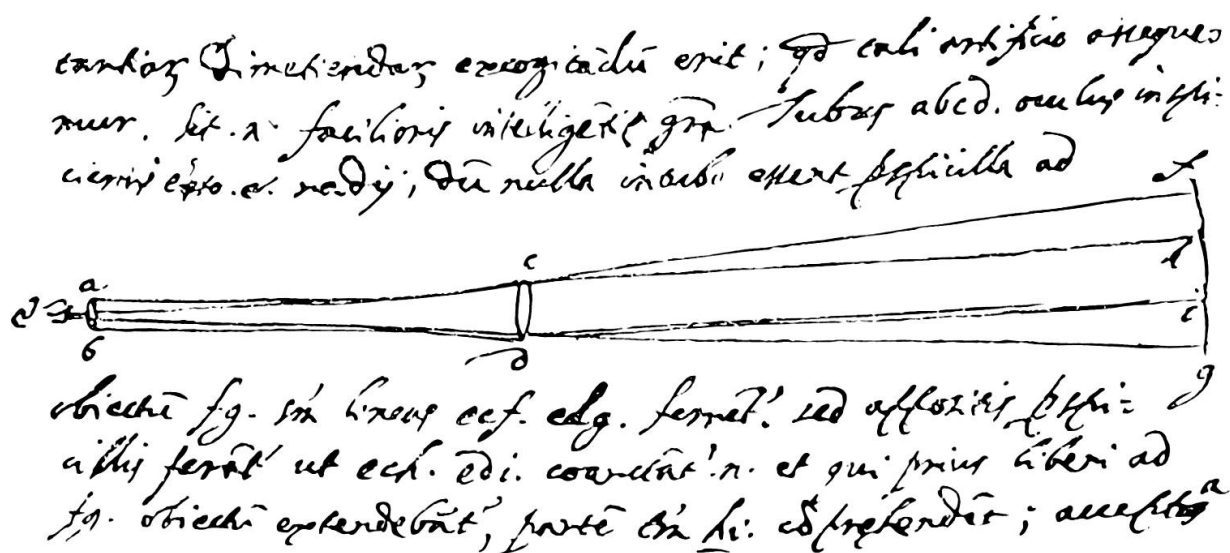 tantiarȝ Dimetiendarȝ excogitādū erit; qđ tali artificio asseque=
mur. Sit .n. facilioris intelligētię grā. Tubus abcd. oculus inspi=
cientis ésto .e. radij, dū nulla in tubo essent pspicilla ad
f
c
a
h
e
i
b
d
g
obiectū f.g. sm̄ lineas ecf. edg. ferrēt.' sed appositis pspi=
cillis ferāt' ut ech. edi. coarctāt'.n. et qui prius liberi ad
fg. obiectū extendebāt', partē tm̄ hi. cōpręhendēt;